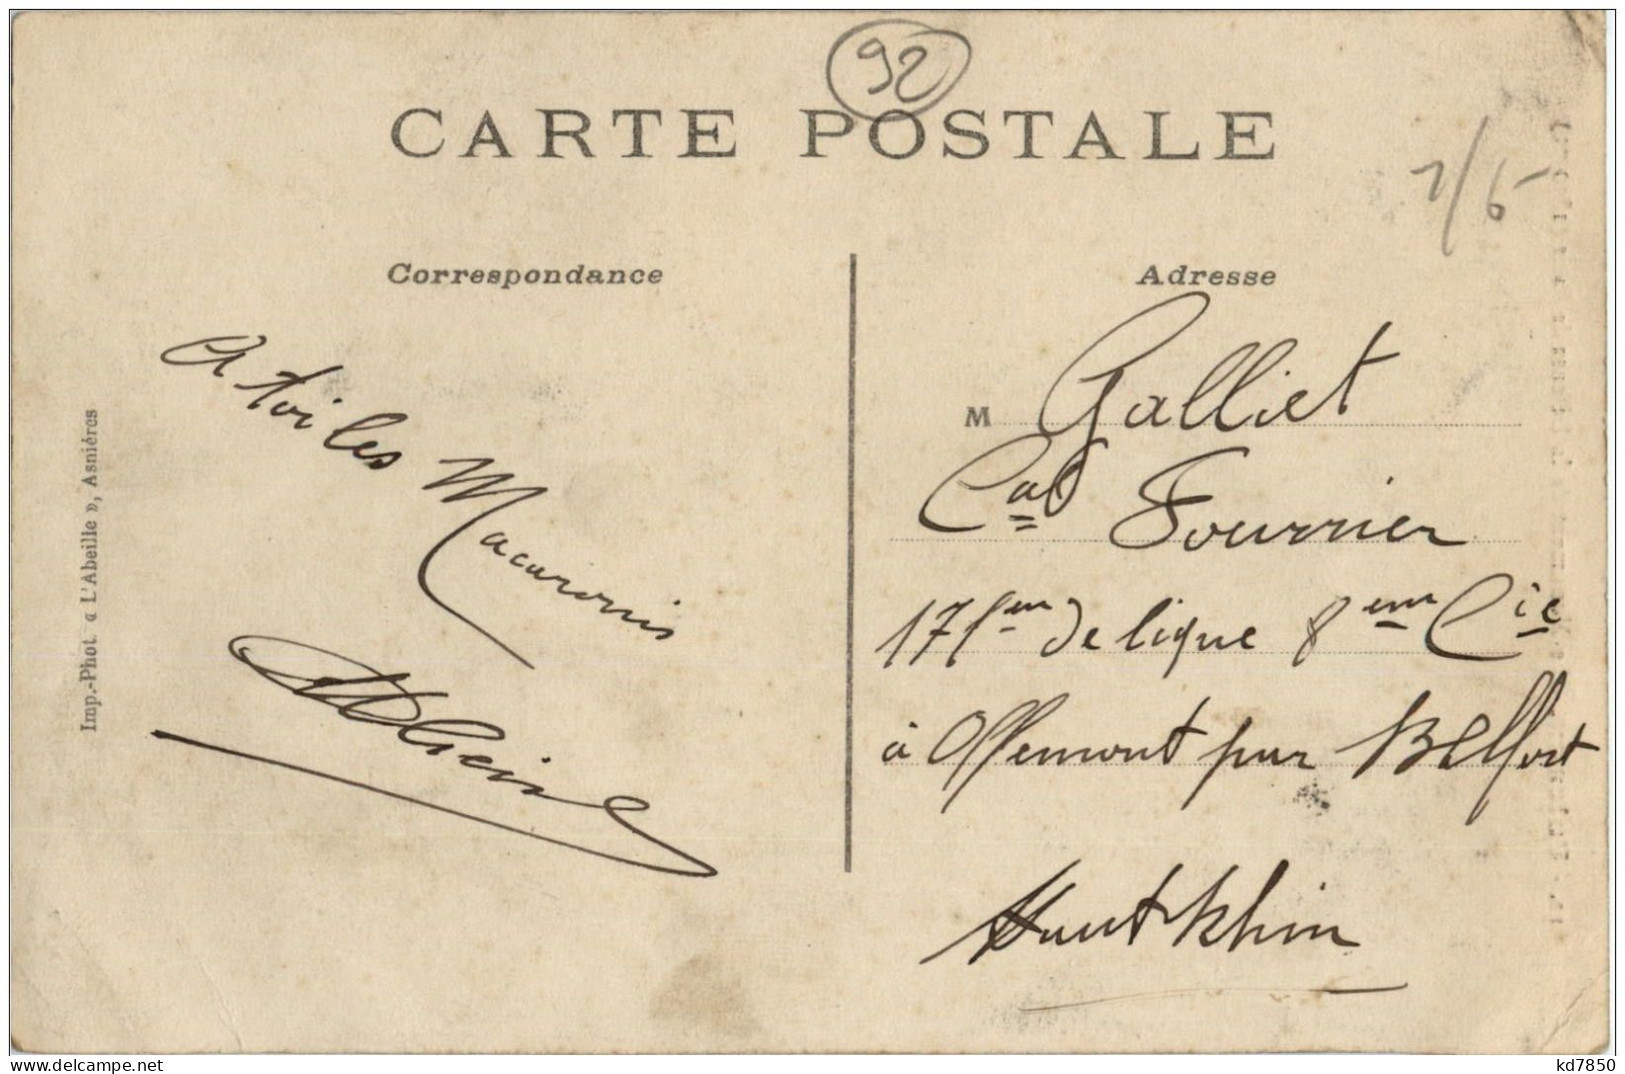 92
CARTE POSTALE
1/6-
Correspondance
Adresse
A toi les Macaronis
M Galliet
Cal Fournier
171em de ligne 8em Cie
à Offemont par Belfort
Haut Rhin
Imp.-Phot. « L'Abeille », Asnières
delcampe.net
kd7850